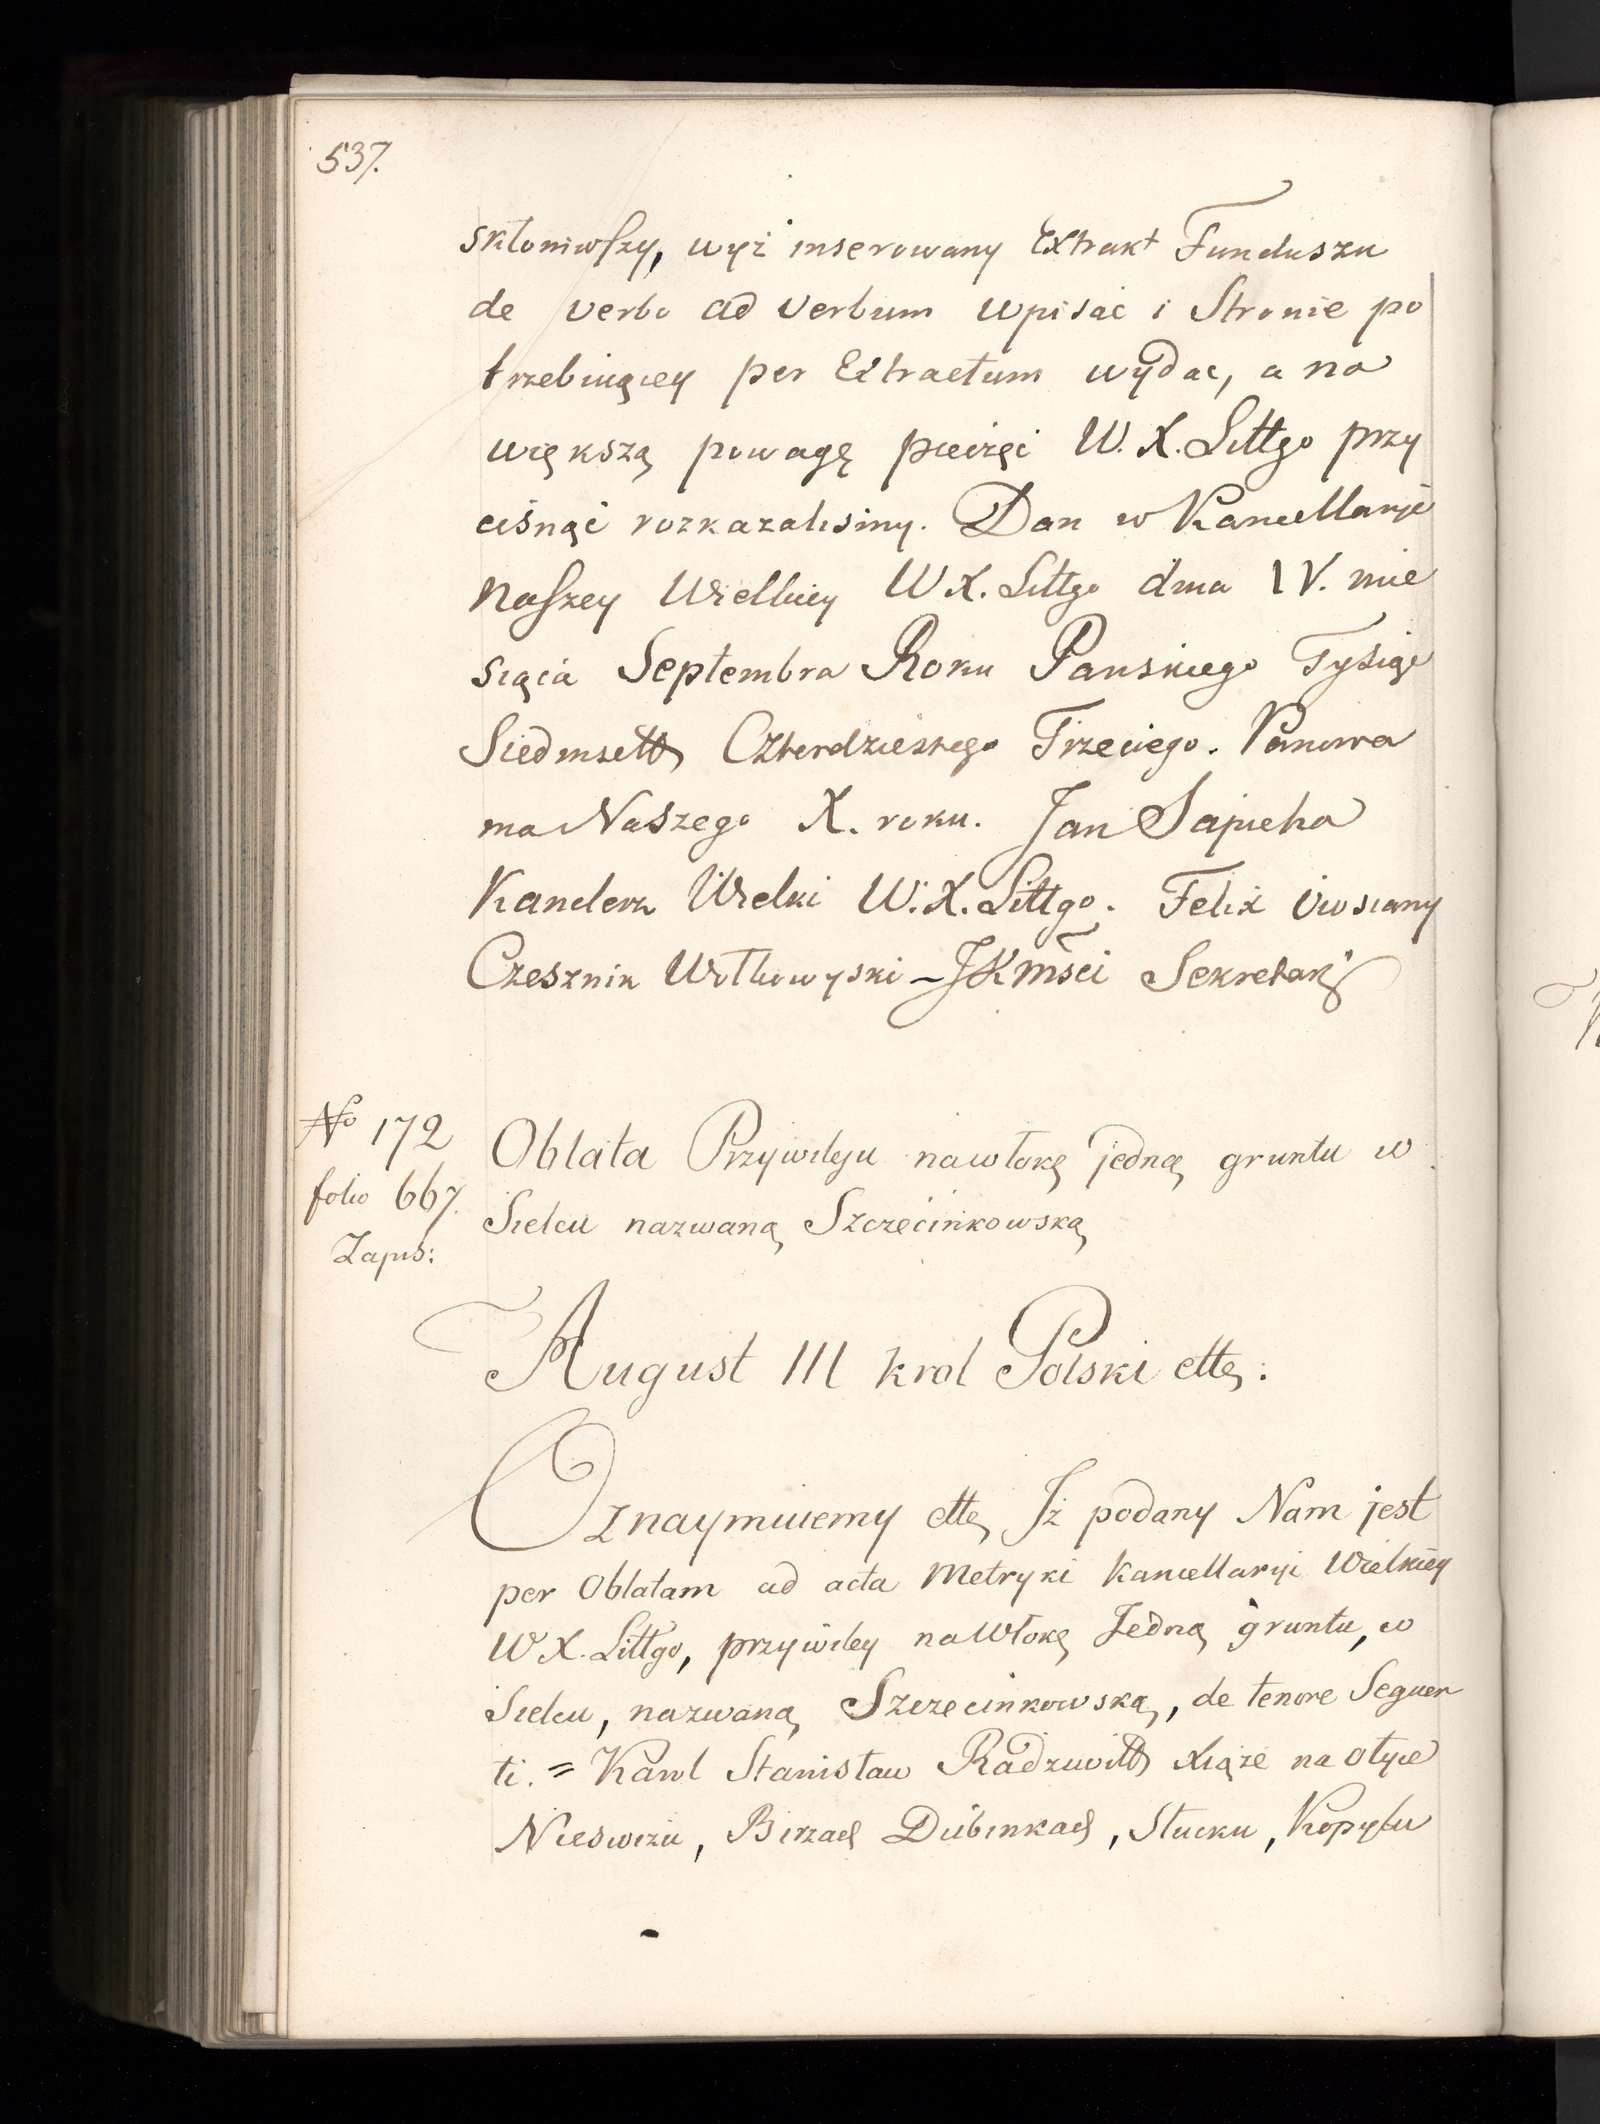 537.
skłoniwszy, wyż inserowany Extrakt Funduszu
de verbo ad verbum wpisać i Stronie po
trzebuiącey per Extractum wydać, a na
większą powagę pieczęć W. X. Littgo przy
cisnąć rozkazalismy. Dan w Kancellaryi
Naszey Wielkiey W. X. Littgo dnia IV. mie
siąca Septembra Roku Panskiego Tysiąc
Siedmsett Czterdziestego Trzeciego. Panowa
nia Naszego X. roku. Jan Sapieha
Kanclerz Wielki W. X. Littgo. Felix Owsiany
Czesznik Wołkowyski – JKMści Sekretarz
No 172
folio 667.
Zapis:
Oblata Przywileju na włokę jedną gruntu w
Sielcu nazwaną Szczecinkowską
August III krol Polski ettc:
Oznaymuiemy ettc Jż podany Nam jest
per Oblatam ad acta Metryki Kancellaryi Wielkiey
W X. Littgo, przywiley na Włokę Jedną gruntu, w
Sielcu, nazwaną Szczecinkowską, de tenore Sequen
ti. = Karol Stanisław Radziwiłł Xiąże na Ołyce
Nieswiżu, Birzach Dubinkach, Słucku, Kopylu